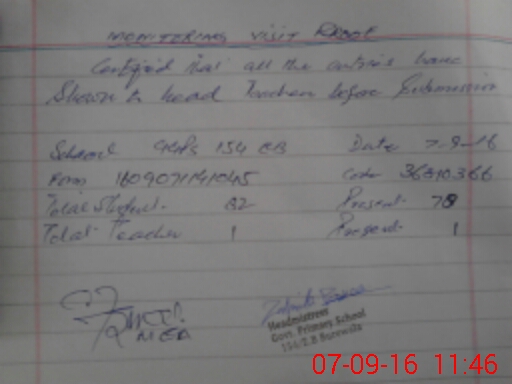 MONITORING VISIT PROOF
Certified that all the entries have
Shown to head Teacher before Submission
School GGPS 154 EB Date 7-9-16
Form Code
Total Student 82 Present 78
Total Teacher 1 Present 1
MEA
Headmistress
Govt. Primary School
154/E.B Burewala
07-09-16 11:46